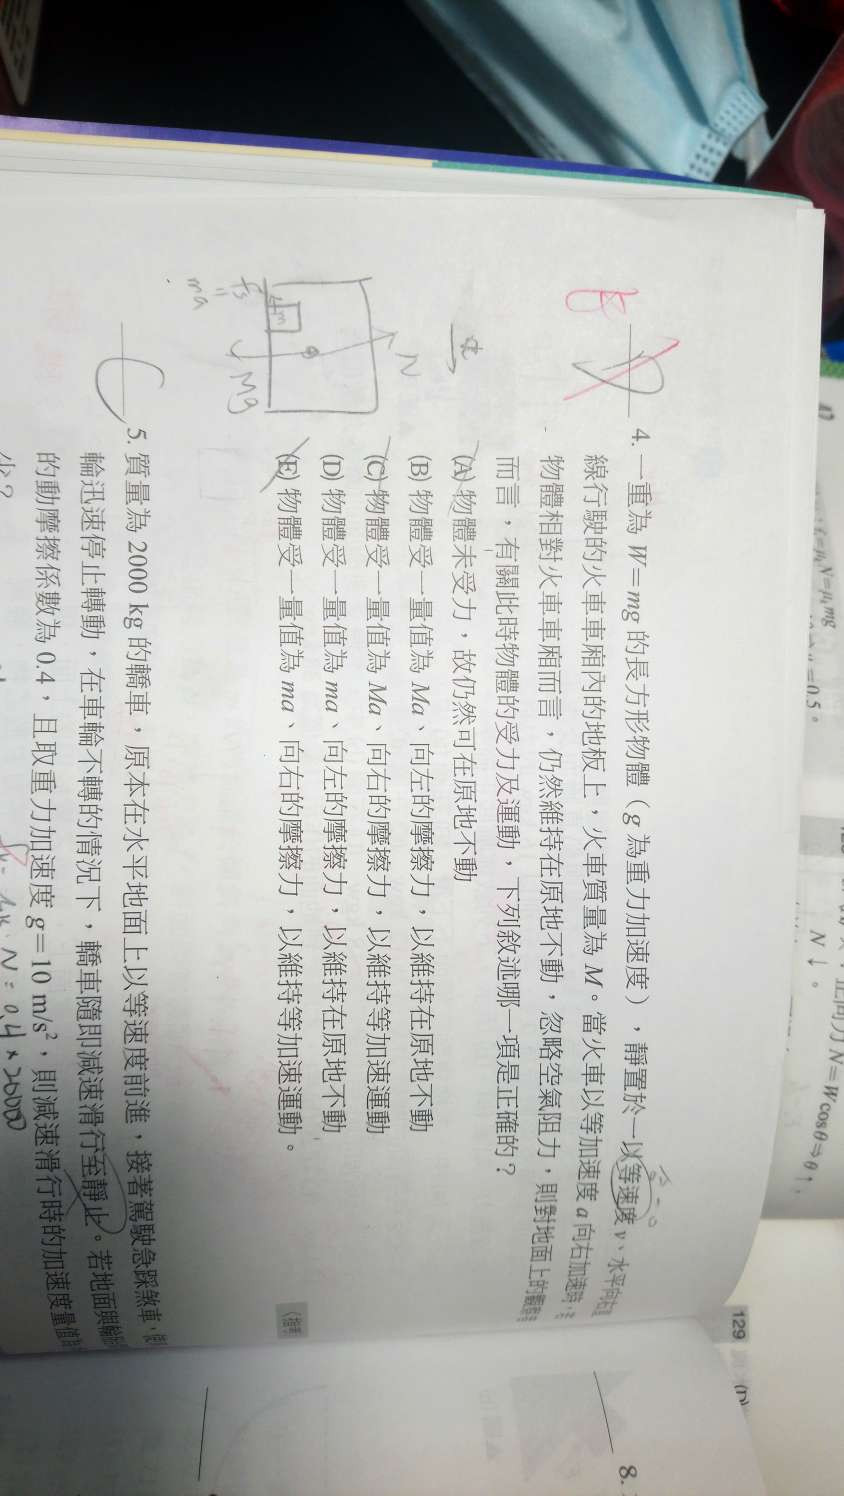 4. 一重為 W=mg 的長方形物體（g 為重力加速度），靜置於一以等速度 v、水平向右直
線行駛的火車車廂內的地板上，火車質量為 M。當火車以等加速度 a 向右加速時，
物體相對火車車廂而言，仍然維持在原地不動，忽略空氣阻力，則對地面上的觀察者
而言，有關此時物體的受力及運動，下列敘述哪一項是正確的？
(A) 物體未受力，故仍然可在原地不動
(B) 物體受一量值為 Ma、向左的摩擦力，以維持在原地不動
(C) 物體受一量值為 Ma、向右的摩擦力，以維持等加速運動
(D) 物體受一量值為 ma、向左的摩擦力，以維持在原地不動
(E) 物體受一量值為 ma、向右的摩擦力，以維持等加速運動。
〈指考
a
N
m
Mg
fs
=
ma
D
E
a=0
5. 質量為 2000 kg 的轎車，原本在水平地面上以等速度前進，接著駕駛急踩煞車，
輪迅速停止轉動，在車輪不轉的情況下，轎車隨即減速滑行至靜止。若地面與輪胎
的動摩擦係數為 0.4，且取重力加速度 g=10 m/s²，則減速滑行時的加速度量值
少？
C
fk = μk · N = 0.4 × 20000
f=μkN=μkmg
=0.5。
N↓。
正向力 N=Wcosθ⇒θ↑，
129
8.